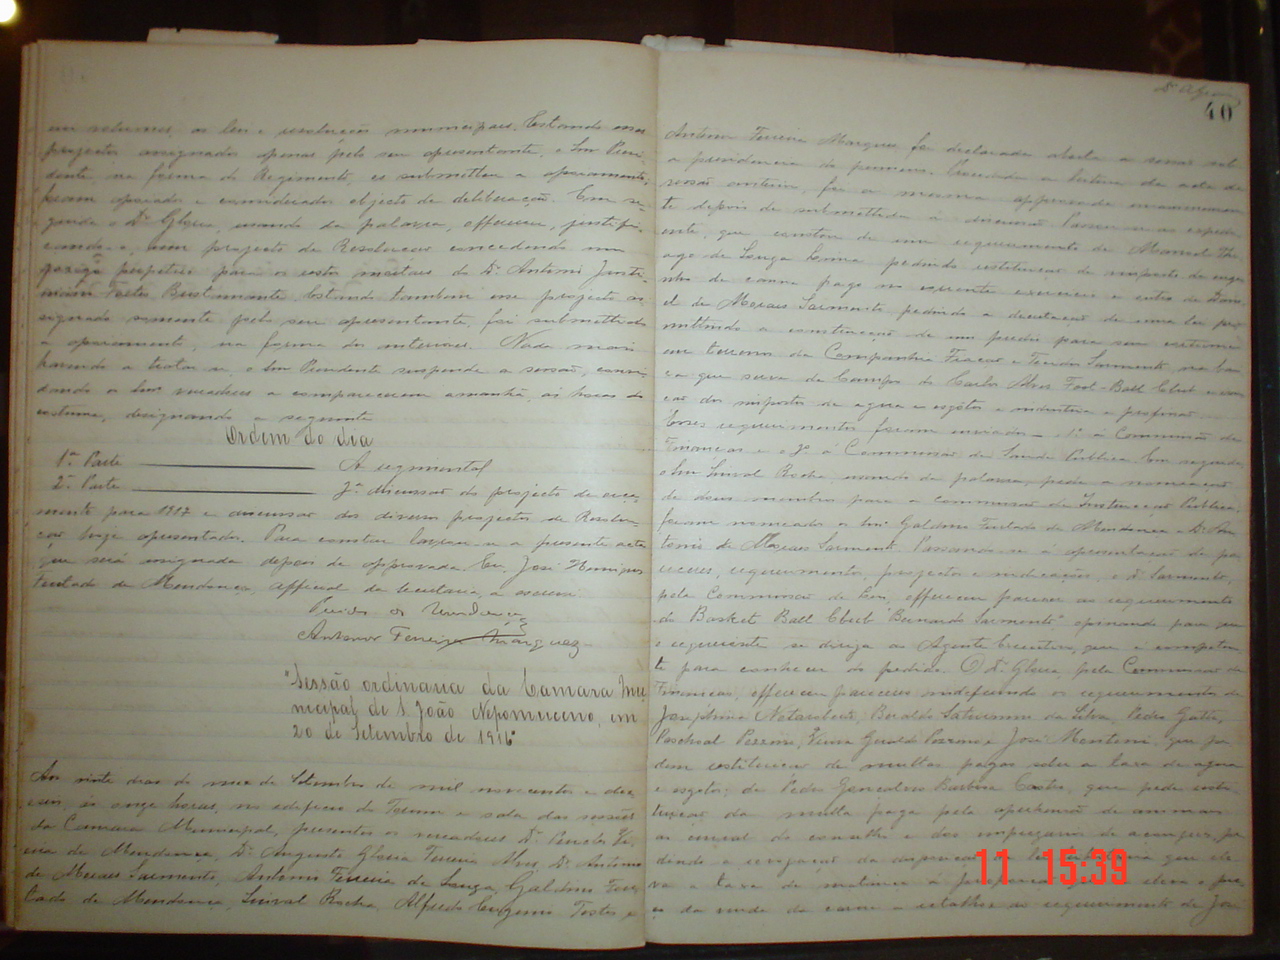 em volumes, as leis e resoluções municipaes. Estando esses
projectos assignados apenas pelo seu apresentante, o Snr Presi-
dente, na forma do Regimento, os submetteu a apoiamento,
foram apoiados e considerados objecto de deliberação. Em se-
guida o Dr. Gloria, usando da palavra, offereceu, justifi-
cando-o, um projecto de Resolução concedendo um
jazigo perpetuo para os restos mortaes do Dr. Antonio Justi-
niano Fortes Bustamante. Estando tambem esse projecto as-
signado somente pelo seu apresentante, foi submettido
a apoiamento, na forma dos anteriores. Nada mais
havendo a tratar-se, o Snr Presidente suspende a sessão, convi-
dando os Snrs vereadores a comparecerem amanhã, ás horas do
costume, designando a seguinte
Ordem do dia
1ª Parte — A regimental
2ª Parte — 2ª discussão do projecto de orça-
mento para 1917 e discussão dos diversos projectos de Resolu-
ção hoje apresentados. Para constar lavrou-se a presente acta
que será assignada depois de approvada. Eu, José Henriques
Furtado de Mendonça, official da Secretaria, a escrevi.
Antonio Ferreira Marques
"Sessão ordinaria da Camara Mu-
nicipal de S. João Nepomuceno, em
20 de Setembro de 1916"
Aos vinte dias do mez de Setembro de mil novecentos e deze-
seis, ás onze horas, no edificio do Forum e sala das sessões
da Camara Municipal, presentes os vereadores Dr. Pericles Vi-
eira de Mendonça, Dr. Augusto Gloria Ferreira Alves, Dr. Antonio
de Moraes Sarmento, Antonio Ferreira de Souza, Galdino Fur-
tado de Mendonça, Sinval Rocha, Alfredo Eugenio Fortes e
40
Antonio Ferreira Marques foi declarada aberta a sessão sob
a presidencia do primeiro. Procedida a leitura da acta da
sessão anterior, foi a mesma approvada unanimemen-
te depois de submettida á discussão. Passou-se ao expedi-
ente, que constou de um requerimento de Manoel Thi-
ago de Souza Lima pedindo restituição de imposto de enge-
nho de canna pago no corrente exercicio e outro de Dani-
el de Moraes Sarmento pedindo a decretação de uma lei per-
mittindo a construcção de um predio
em terrenos da Companhia Fiação e Tecidos Sarmento
que serve de Campo do Carlos Alves Foot-Ball Club e
dos impostos de agua e esgôtos e industria e profissão.
Esses requerimentos foram enviados — o 1º á Commissão de
Finanças e o 2º á Commissão de Saude Publica. Em seguida,
o Snr Sinval Rocha, usando da palavra, pede a nomeação
de dous membros para a commissão de Instrucção Publica,
foram nomeados os Snrs Galdino Furtado de Mendonça e Dr. An-
tonio de Moraes Sarmento. Passando-se á apresentação de pa-
receres, requerimentos, projectos e indicações, o Dr. Sarmento,
pela Commissão de Leis, offereceu parecer ao requerimento
do Basket Ball Club "Bernardo Sarmento" opinando para que
o requerente se dirija ao Agente Executivo, que é competen-
te para conhecer do pedido. O Dr. Gloria, pela Commissão de
Finanças, offereceu pareceres indeferindo os requerimentos de
Josephina Notaroberto, Beraldo Saturnino da Silva, Pedro Gatto,
Paschoal Pezzoni, José Mantoni, que pe-
dem restituição de multas pagas sobre a taxa de agua
e esgôtos; de Pedro Gonçalves Barbosa Castro, que pede resti-
tuição da multa paga pela apprehensão de animaes
ao curral do conselho e dos impezarios de açougues, pe-
dindo a
va a taxa de matança
o da venda da carne e relativo ao requerimento de Jose
11 15:39